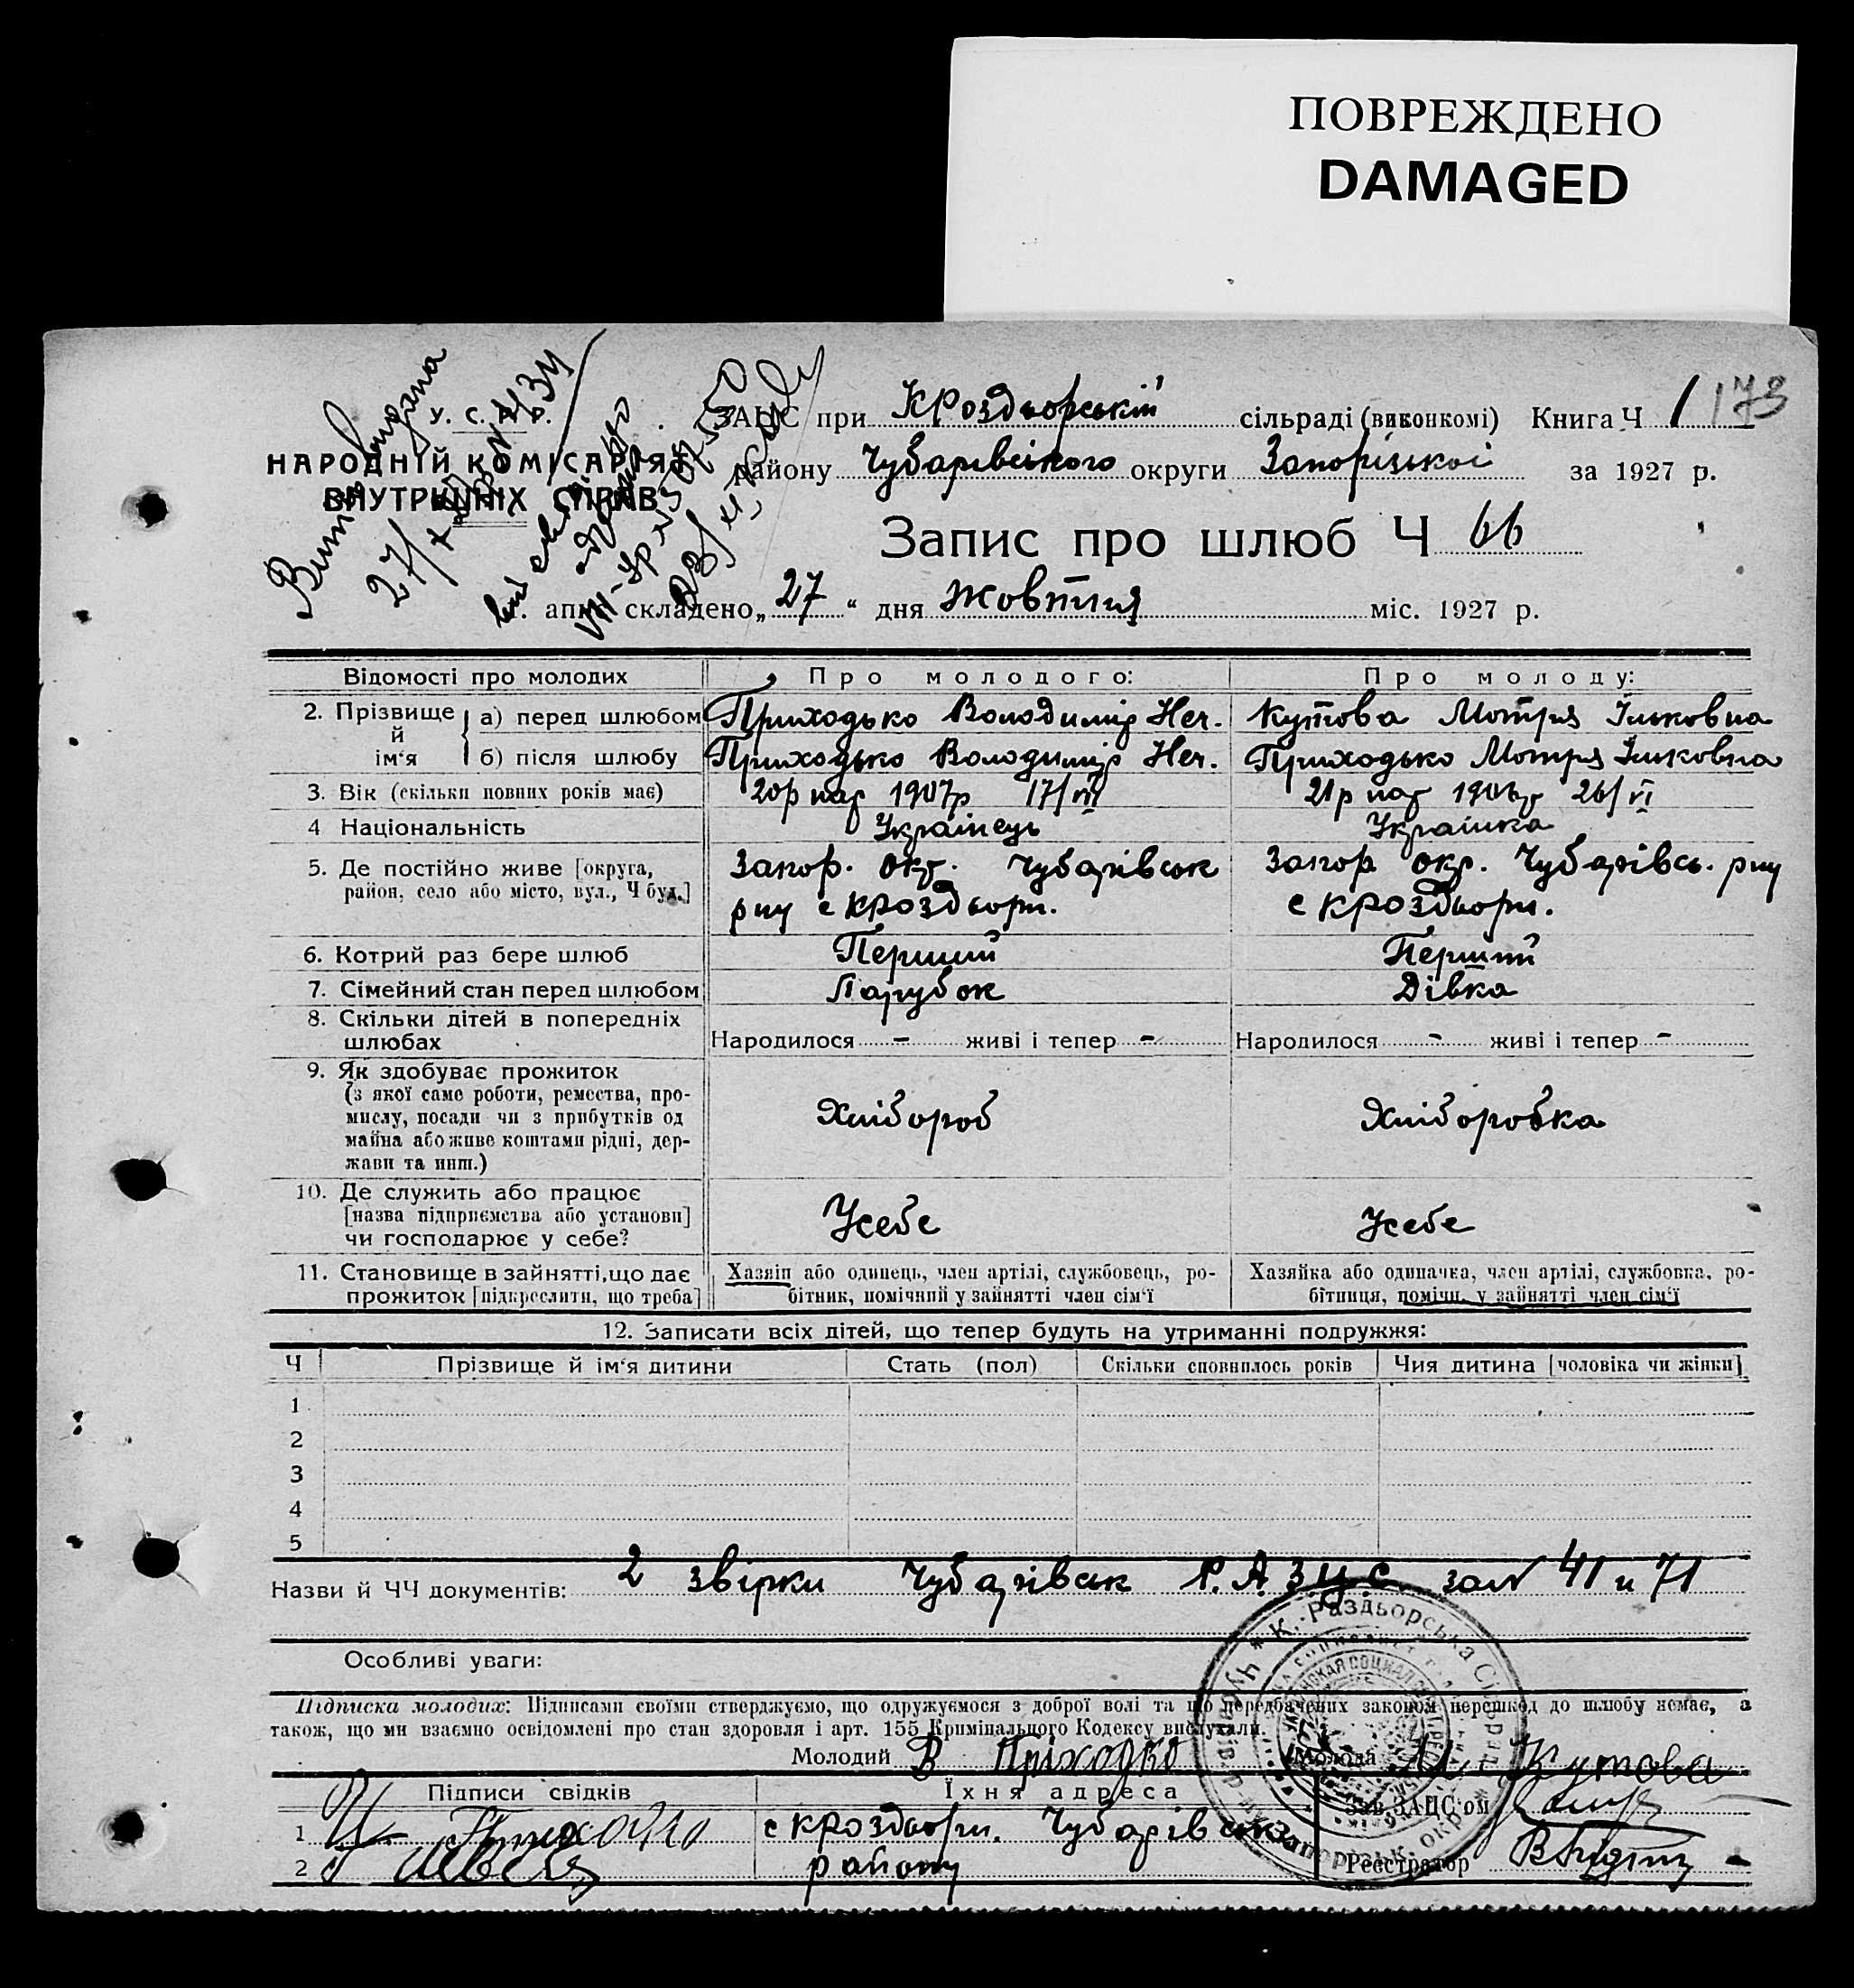 ПОВРЕЖДЕНО
DAMAGED
У. С. Р. Р.
НАРОДНІЙ КОМІСАРІЯТ
ВНУТРІШНІХ СПРАВ
ЗАЦС при КРоздьорській сільраді (виконкомі) Книга Ч 1 173
району Чубарівського округи Запоріської за 1927 р.
Запис про шлюб Ч 66
1. апис складено „27“ дня Жовтня міс. 1927 р.
Відомості про молодих Про молодого: Про молоду:
2. Прізвище й ім‘я
а) перед шлюбом Приходько Володимір Неч. Кутова Мотря Ільковна
б) після шлюбу Приходько Володимір Неч. Приходько Мотря Ільковна
3. Вік (скільки повних років має) 20р нар 1907р 17/VII 21р нар 1906р 26/VI
4 Національність Українець Українка
5. Де постійно живе [округа, район, село або місто, вул., Ч буд.] Запор. окр. Чубарівськ рну с КРоздьори. Запор окр. Чубарівсь. рну с КРоздьори.
6. Котрий раз бере шлюб Перший Перший
7. Сімейний стан перед шлюбом Парубок Дівка
8. Скільки дітей в попередніх шлюбах Народилося - живі і тепер - Народилося - живі і тепер -
9. Як здобуває прожиток
(з якої саме роботи, ремества, про-
мислу, посади чи з прибутків од
майна або живе коштами рідні, дер-
жави та инш.) Хлібороб Хліборобка
10. Де служить або працює
[назва підприємства або установи]
чи господарює у себе? Усебе Усебе
11. Становище в зайнятті,що дає
прожиток [підкреслити, що треба]
Хазяїн або одинець, член артілі, службовець, ро-
бітник, помічний у зайнятті член сім‘ї
Хазяйка або одиначка, член артілі, службовка, ро-
бітниця, помічн. у зайнятті член сім‘ї
12. Записати всіх дітей, що тепер будуть на утриманні подружжя:
Ч Прізвище й ім‘я дитини Стать (пол) Скільки сповнилось років Чия дитина [чоловіка чи жінки]
1
2
3
4
5
Назви й ЧЧ документів: 2 звірки Чубарівськ Р.А.ЗЦС за N 41 и 71
Особливі уваги:
Підписка молодих: Підписами своїми стверджуємо, що одружуємося з доброї волі та що передбачених законом перешкод до шлюбу немає, а
також, що ми взаємно освідомлені про стан здоровля і арт. 155 Кримінального Кодексу вислухали.
Молодий В Пріходко Молода М Кутова
Підписи свідків Їхня адреса Зав.ЗАЦС‘ом
1 с КРоздьори. Чубарівськ
2 району Реєстратор
К.-Раздьорська Сільрада